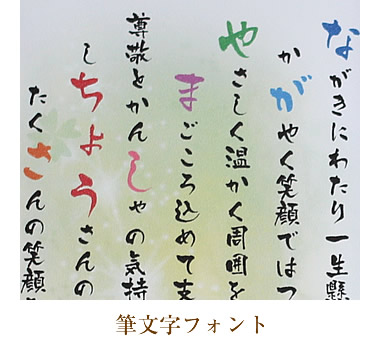 ながきにわたり一生懸
かがやく笑顔ではつ
やさしく温かく周囲を
まごころ込めて支
尊敬とかんしゃの気持
しちょうさんの
たくさんの笑顔
筆文字フォント